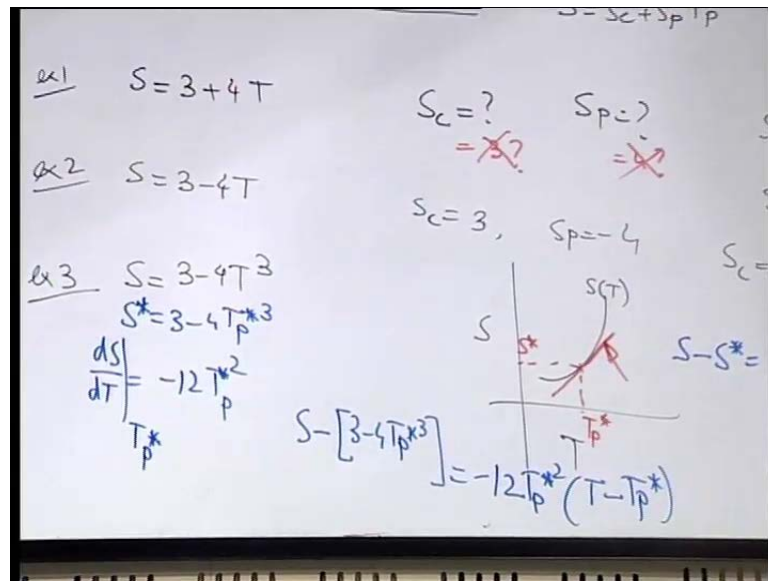 S = Sc + Sp Tp
ex1 S = 3 + 4T
Sc = ? Sp = ?
= 3? = 4?
ex2 S = 3 - 4T
Sc = 3, Sp = -4
ex3 S = 3 - 4T^3
Sc =
S* = 3 - 4Tp*^3
S(T)
S
S*
S - S* =
dS/dT|Tp* = -12Tp*^2
Tp*
T
S - [3 - 4Tp*^3] = -12Tp*^2 (T - Tp*)